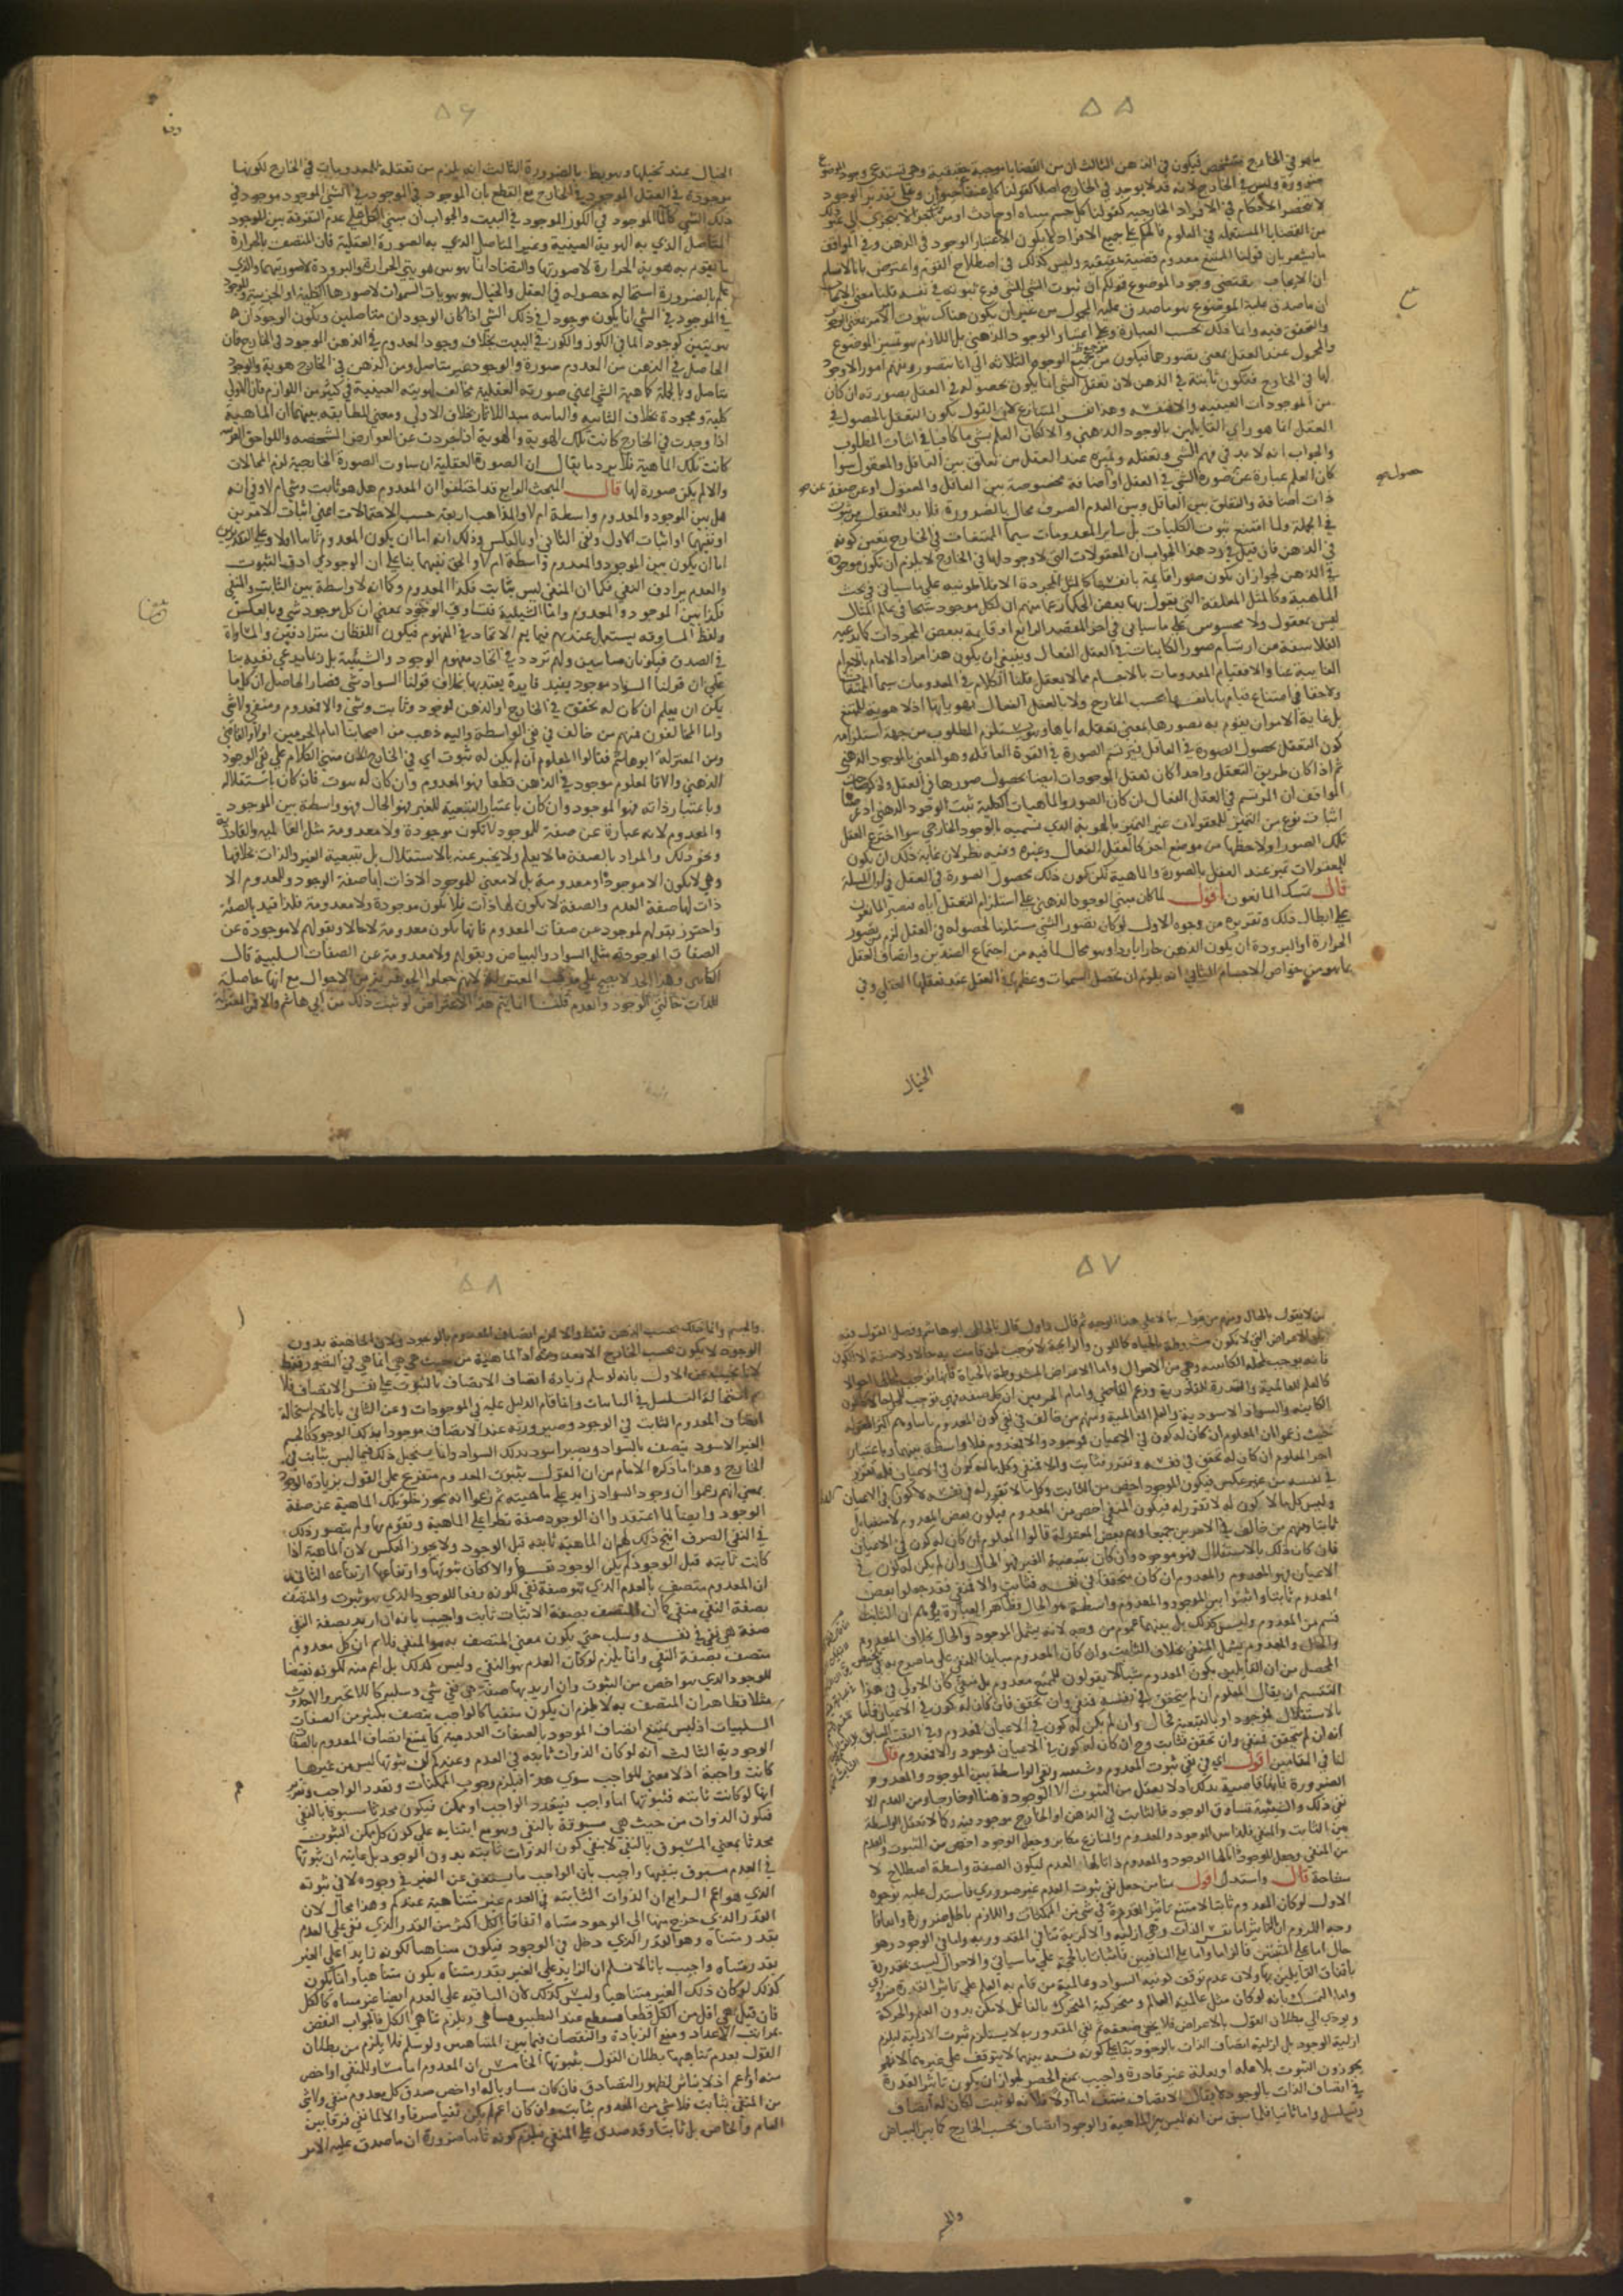 ۵۵
ما هو في الخارج متشخص فيكون في الذهن الثالث ان من القضايا موجبة حقيقية وهي تستدعي وجود الموضوع
ضرورة وليس في الخارج لانه قد لا يوجد في الخارج اصلا كقولنا كل عنقا حيوان وعلى تقدير الوجود
لا تنحصر الاحكام في الافراد الخارجية كقولنا كل جسم متناه او حادث او مركب الى غير ذلك
من القضايا المستعملة في العلوم فالحكم على جميع الافراد لا يكون الا باعتبار الوجود في الذهن وفي المواقف
ما يشعر بان قولنا الممتنع معدوم قضية حقيقية وليس كذلك في اصطلاح القوم واعترض بانا لا نسلم
ان الايجاب يقتضي وجود الموضوع قولكم ان ثبوت الشي للشي فرع ثبوته في نفسه قلنا معنى الايجاب
ان ما صدق عليه الموضوع هو ما صدق عليه المحمول من غير ان يكون هناك ثبوت الامر بمعنى الوجود
والتحقق فيه وانما ذلك بحسب العبارة وعلى اعتبار الوجود الذهني بل اللازم هو تميز الموضوع
والمحمول عند العقل بمعنى تصورهما فيكون مرجع جميع الوجوه الثلاثة الى انا نتصور ونفهم امورا لا وجود
لها في الخارج فتكون ثابتة في الذهن لان تعقل الشي انما يكون بحصوله في العقل بصورته ان كان
من الموجودات العينية والا فبنفسه وهذا نفس المتنازع لان القول بكون التعقل بالحصول في
العقل انما هو راي القايلين بالوجود الذهني والا لكان العلم بشي ما كافيا في اثبات المطلوب
والجواب انه لا بد في فهم الشي وتعقله وتميزه عند العقل من تعلق بين العاقل والمعقول سوا
كان العلم عبارة عن حصول صورة الشي في العقل او اضافة مخصوصة بين العاقل والمعقول او عن صفة
ذات اضافة والتعلق بين العاقل وبين العدم الصرف محال بالضرورة فلا بد للمعقول من ثبوت
في الجملة ولما امتنع ثبوت الكليات بل ساير المعدومات سيما الممتنعات في الخارج تعين كونه
في الذهن فان قيل في رد هذا الجواب ان المعقولات التي لا وجود لها في الخارج لا يلزم ان تكون موجودة
في الذهن لجواز ان تكون صورا قايمة بانفسها كالمثل المجردة الافلاطونية على ما سياتي في بحث
الماهية وكالمثل المعلقة التي يقول بها بعض الحكما زعما منهم ان لكل موجود شبحا في عالم المثال
ليس بمعقول ولا محسوس على ما سياتي في اخر المقصد الرابع او قايمة ببعض المجردات كما تدعيه
الفلاسفة من ارتسام صور الكاينات في العقل الفعال وينبغي ان يكون هذا مراد الامام بالاجرام
الغايبة عنا والا فقيام المعدومات بالاجسام مما لا يعقل قلنا الكلام في المعدومات سيما الممتنعات
ولا خفا في امتناع قيامها بانفسها بحسب الخارج ولا بالعقل الفعال بهوياتها اذ لا هوية للممتنع
بل غاية الامر ان يقوم به تصورها بمعنى تعقله اياها وهو يستلزم المطلوب من جهة استلزامه
كون التعقل بحصول الصورة في العاقل فترتسم الصورة في القوة العاقلة وهو المعنى بالوجود الذهني
ثم اذا كان طريق التعقل واحدا كان تعقل الموجودات ايضا بحصول صورها في العقل وذكر صاحب
المواقف ان المرتسم في العقل الفعال ان كان الصور والماهيات الكلية ثبت الوجود الذهني اذ غرضنا
اثبات نوع من التميز للمعقولات غير التميز بالهوية الذي نسميه بالوجود الخارجي سوا اخترع العقل
تلك الصور او لاحظها من موضع اخر كالعقل الفعال وغيره وفيه نظر لان غاية ذلك ان يكون
للمعقولات تميز عند العقل بالصورة والماهية لكن كون ذلك بحصول الصورة في العقل
قال تمسك المانعون اقول لما كان مبنى الوجود الذهني على استلزام التعقل اياه تصدى المانعون
على ابطال ذلك وتقريره من وجوه الاول لو كان تصور الشي مستلزما لحصوله في العقل لزم من تصور
الحرارة او البرودة ان يكون الذهن حارا باردا وهو محال لما فيه من اجتماع الضدين واتصاف العقل
بما هو من خواص الاجسام الثاني انه يلزم ان تحصل السموات وعظمها في العقل عند تعقلها العقلي وفي
الخيال
۵۶
الخيال عند تخيلها وهو باطل بالضرورة الثالث انه يلزم من تعقلنا للمعدومات في الخارج لكونها
موجودة في العقل الموجود في الخارج مع القطع بان الموجود في الموجود في الشي موجود في
ذلك الشي كالماء الموجود في الكوز الموجود في البيت والجواب ان مبنى الكل على عدم التفرقة بين الوجود
المتاصل الذي به الهوية العينية وغير المتاصل الذي به الصورة العقلية فان المتصف بالحرارة
ما تقوم به هوية الحرارة لا صورتها والتضاد انما هو بين هويتي الحرارة والبرودة لا صورتيهما والذي
علم بالضرورة استحالة حصوله في العقل والخيال هو هويات السموات لا صورها الكلية او الجزئية والموجود
في الموجود في الشي انما يكون موجودا في ذلك الشي اذا كان الوجودان متاصلين ويكون الموجودان
هويتين كوجود الما في الكوز والكوز في البيت بخلاف وجود المعدوم في الذهن الموجود في الخارج فان
الحاصل في الذهن من المعدوم صورة والوجود غير متاصل ومن الذهن في الخارج هوية والوجود
متاصل وبالجملة فماهية الشي اعني صورته العقلية مخالفة لهويته العينية في كثير من اللوازم فان الاولى
كلية ومجردة بخلاف الثانية والثانية مبدا للاثار بخلاف الاولى ومعنى المطابقة بينهما ان الماهية
اذا وجدت في الخارج كانت تلك الهوية والهوية اذا جردت عن العوارض المشخصة واللواحق الغريبة
كانت تلك الماهية فلا يرد ما يقال ان الصورة العقلية ان ساوت الصورة الخارجية لزم المحالات
والا لم يكن صورة لها قال المبحث الرابع قد اختلفوا ان المعدوم هل هو ثابت وشي ام لا وفي انه
هل بين الموجود والمعدوم واسطة ام لا والمذاهب اربعة حسب الاحتمالات اعني اثبات الامرين
او نفيهما او اثبات الاول ونفي الثاني او بالعكس وذلك انه اما ان يكون المعدوم ثابتا او لا وعلى التقديرين
اما ان يكون بين الموجود والمعدوم واسطة ام لا والحق نفيهما بنا على ان الوجود يرادف الثبوت
والعدم يرادف النفي فكما ان المنفي ليس بثابت فكذا المعدوم وكما انه لا واسطة بين الثابت والمنفي
فكذا بين الموجود والمعدوم واما الشيئية فتساوق الوجود بمعنى ان كل موجود شي وبالعكس
ولفظ المساوقة يستعمل عندهم فيما يعم الاتحاد في المفهوم فيكون اللفظان مترادفين والمساواة
في الصدق فيكونان متباينين ولهم تردد في اتحاد مفهوم الوجود والشيئية بل ربما يدعى نفيه بنا
على ان قولنا السواد موجود يفيد فايدة يعتد بها بخلاف قولنا السواد شي فصار الحاصل ان كل ما
يمكن ان يعلم ان كان له تحقق في الخارج او الذهن فموجود وثابت وشي والا فمعدوم ومنفي ولا شي
واما المخالفون فمنهم من خالف في نفي الواسطة واليه ذهب من اصحابنا امام الحرمين اولا والقاضي
ومن المعتزلة ابو هاشم فقالوا المعلوم ان لم يكن له ثبوت اي في الخارج لان مبنى الكلام على نفي الوجود
الذهني والا فالمعلوم موجود في الذهن قطعا فهو المعدوم وان كان له ثبوت فان كان باستقلاله
وباعتبار ذاته فهو الموجود وان كان باعتبار التبعية للغير فهو الحال فهو واسطة بين الموجود
والمعدوم لانه عبارة عن صفة للموجود لا تكون موجودة ولا معدومة مثل العالمية والقادرية
ونحو ذلك والمراد بالصفة ما لا يعلم ولا يخبر عنه بالاستقلال بل بتبعية الغير والذات بخلافها
وهي لا تكون الا موجودة او معدومة بل لا معنى للموجود الا ذات لها صفة الوجود وللمعدوم الا
ذات لها صفة العدم والصفة لا يكون لها ذات فلا تكون موجودة ولا معدومة فلذا قيد بالصفة
واحترز بقولهم لموجود عن صفات المعدوم فانها تكون معدومة لا حالا وبقولهم لا موجودة عن
الصفات الوجودية مثل السواد والبياض وبقولهم ولا معدومة عن الصفات السلبية قال
الكاتبي وهذا الحد لا يصح على مذهب المعتزلة لانهم جعلوا الجوهرية من الاحوال مع انها حاصلة
للذات حالتي الوجود والعدم قلنا انما يتم هذا الاعتراض لو ثبت ذلك من ابي هاشم والا فمن المعتزلة
۵۷
من لا يقول بالحال ومنهم من يقول بها لا على هذا الوجه ثم قال واول من قال بالحال ابو هاشم وفصل القول فيه
بان الاعراض التي لا تكون مشروطة بالحياة كاللون والرايحة لا توجب لمن قامت به حالا ولا صفة الا الكون
فانه يوجب لمحله الكاينية وهي من الاحوال واما الاعراض المشروطة بالحياة فانها توجب لمحالها احوالا
كالعلم العالمية والقدرة القادرية وزعم القاضي وامام الحرمين ان كل صفة فهي توجب للمحل حالا كالكون
الكاينية والسواد الاسودية والعلم العالمية ومنهم من خالف في نفي كون المعدوم ثابتا وهم اكثر المعتزلة
حيث زعموا ان المعلوم ان كان له كون في الاعيان فموجود والا فمعدوم فلا واسطة بينهما وباعتبار
اخر المعلوم ان كان له تحقق في نفسه وتقرر فثابت والا فمنفي وكل ما له كون في الاعيان فله تقرر
في نفسه من غير عكس فيكون الموجود اخص من الثابت وكل ما لا تقرر له في نفسه لا كون له في الاعيان
وليس كل ما لا كون له لا تقرر له فيكون المنفي اخص من المعدوم فيكون بعض المعدوم لا منفيا بل
ثابتا ومنهم من خالف في الامرين جميعا وهم بعض المعتزلة قالوا المعلوم ان كان له كون في الاعيان
فان كان ذلك بالاستقلال فهو موجود وان كان بتبعية الغير فهو الحال وان لم يكن له كون في
الاعيان فهو المعدوم والمعدوم ان كان متحققا في نفسه فثابت والا فمنفي فقد جعلوا بعض
المعدوم ثابتا واثبتوا بين الموجود والمعدوم واسطة هو الحال وظاهر العبارة يوهم ان الثابت
قسم من المعدوم وليس كذلك بل بينهما عموم من وجه لانه يشمل الموجود والحال بخلاف المعدوم
والحال والمعدوم يشمل المنفي بخلاف الثابت وان كان المعدوم مباينا للمنفي على ما صرح به في تلخيص
المحصل من ان القايلين بكون المعدوم شيا لا يقولون للممتنع معدوم بل منفي كان الاولى في هذا
التقسيم ان يقال المعلوم ان لم يتحقق في نفسه فمنفي وان تحقق فان كان له كون في الاعيان فاما
بالاستقلال فموجود او بالتبعية فحال وان لم يكن له كون في الاعيان فمعدوم وفي التقسيم السابق
انه ان لم يتحقق فمنفي وان تحقق فثابت وح ان كان له كون في الاعيان فموجود والا فمعدوم قال
لنا في المقامين اقول اي في نفي ثبوت المعدوم وشيئيته ونفي الواسطة بين الموجود والمعدوم
الضرورة فانها قاضية بذلك اذ لا يعقل من الثبوت الا الوجود ذهنا او خارجا ومن العدم الا
نفي ذلك والشيئية تساوق الوجود فالثابت في الذهن او الخارج موجود فيه وكما لا تعقل الواسطة
بين الثابت والمنفي فكذا بين الموجود والمعدوم والمنازع مكابر وجعل الوجود اخص من الثبوت والعدم
من المنفي وجعل الموجود ذاتا لها الوجود والمعدوم ذاتا لها العدم ليكون الصفة واسطة اصطلاح لا
مشاحة قال واستدل اقول منا من جعل نفي ثبوت العدم غير ضروري فاستدل عليه بوجوه
الاول لو كان المعدوم ثابتا لامتنع تاثير القدرة في شي من الممكنات واللازم باطل ضرورة واتفاقا
وجه اللزوم ان التاثير اما في نفس الذات وهي ازلية والازلية تنافي المقدورية واما في الوجود وهو
حال اما على المثبتين فالزاما واما على النافيين فاثباتا بالحجة على ما سياتي والاحوال ليست مقدورة
باتفاق القايلين بها ولان عدم توقف لونية السواد وعالمية من قام به العلم على تاثير القدرة ضروري
واما التمسك بانه لو كان مثل عالمية العالم ومتحركية المتحرك بالفاعل لامكن بدون العلم والحركة
ويودي الى بطلان القول بالاعراض فلا يخفى ضعفه ثم نفي المقدورية لا يستلزم ثبوت الازلية ليلزم
ازلية الوجود بل ازلية اتصاف الذات بالوجود بنا على كونه نسبة بينهما لا يتوقف على غيرهما لانهم
يجوزون الثبوت بلا علة او بعلة غير قادرة واجيب بمنع الحصر لجواز ان يكون تاثير القدرة
في اتصاف الذات بالوجود لا يقال الاتصاف منتف اما اولا فلانه لو ثبت لكان له اتصاف
وتسلسل واما ثانيا فلما سبق من انه ليس بين الماهية والوجود اتصاف بحسب الخارج كما بين البياض
والجسم
۵۸
والجسم وانما ذلك بحسب الذهن فقط والا لزم اتصاف المعدوم بالوجود ولان الماهية بدون
الوجود لا يكون بحسب الخارج الا معدومة اذ الماهية من حيث هي هي انما هي في التصور فقط
لانا نجيب عن الاول بانه لو سلم زيادة اتصاف الاتصاف بالثبوت على نفس الاتصاف فلا
نم استحالة التسلسل في الثابتات وانما قام الدليل عليه في الموجودات وعن الثاني بانا لانم استحالة
اتصاف المعدوم الثابت في الوجود وصيرورته عند الاتصاف موجودا بذلك الوجود كالجسم
الغير الاسود يتصف بالسواد ويصير اسود بذلك السواد وانما يستحيل ذلك فيما ليس بثابت في
الخارج وهذا ما ذكره الامام من ان القول بثبوت المعدوم متفرع على القول بزيادة الوجود
بمعنى انهم زعموا ان وجود السواد زايد على ماهيته ثم زعموا انه يجوز خلو تلك الماهية عن صفة
الوجود وايضا لما اعتقدوا ان الوجود صفة تطرا على الماهية وتقوم بها ولم يتصور ذلك
في النفي الصرف انتج ذلك لهم ان الماهية ثابتة قبل الوجود ولا يجوز العكس لان الماهية اذا
كانت ثابتة قبل الوجود لم يكن الوجود نفسها والا لكان ثبوتها وارتفاعها ارتفاعه الثاني
ان المعدوم متصف بالعدم الذي هو صفة نفي لكونه رفعا للوجود الذي هو ثبوت والمتصف
بصفة النفي منفي كما ان المتصف بصفة الاثبات ثابت واجيب بانه ان اريد بصفة النفي
صفة هي نفي في نفسه وسلب حتى يكون معنى المتصف به هو المنفي فلانم ان كل معدوم
متصف بصفة النفي وانما يلزم لو كان العدم هو النفي وليس كذلك بل اعم منه لكونه نقيضا
للوجود الذي هو اخص من الثبوت وان اريد بها صفة هي نفي شي وسلبه كاللاتحيز واللاحدوث
مثلا فظاهر ان المتصف به لا يلزم ان يكون منفيا كالواجب يتصف بكثير من الصفات
السلبيات اذ ليس يمتنع اتصاف الموجود بالصفات العدمية كما يمتنع اتصاف المعدوم بالصفات
الوجودية الثالث انه لو كان الذوات ثابتة في العدم وعندكم ان ثبوتها ليس من غيرها
كانت واجبة اذ لا معنى للواجب سوى هذا فيلزم وجوب الممكنات وتعدد الواجب وتقرر
انها لو كانت ثابتة فثبوتها اما واجب فيتعدد الواجب او ممكن فيكون محدثا مسبوقا بالنفي
فتكون الذوات من حيث هي مسبوقة بالنفي وهو مع ابتنايه على كون كل ممكن الثبوت
محدثا بمعنى المسبوق بالنفي لا ينفي كون الذوات ثابتة بدون الوجود بل غايته ان ثبوتها
في العدم مسبوق بنفيها واجيب بان الواجب ما يستغني عن الغير في وجوده لا في ثبوته
الذي هو اعم الرابع ان الذوات الثابتة في العدم غير متناهية عندكم وهذا محال لان
القدر الذي خرج منها الى الوجود متناه اتفاقا فالكل اكثر من القدر الذي بقي على العدم
بقدر متناه وهو القدر الذي دخل في الوجود فيكون متناهيا لكونه زايدا على الغير
بقدر متناه واجيب بانا لا نسلم ان الزايد على الغير بقدر متناه يكون متناهيا وانما يكون
كذلك لو كان ذلك الغير متناهيا وليس كذلك لان الباقية على العدم ايضا غير متناه كالكل
فان قيل هي اقل من الكل قطعا فينقطع عند التطبيق فيتناهى ويلزم تناهي الكل فالجواب النقض
بمراتب الاعداد ومنع الزيادة والنقصان فيما بين المتناهيين ولو سلم فلا يلزم من بطلان
القول بعدم تناهيها بطلان القول بثبوتها الخامس ان المعدوم اما مساو للمنفي او اخص
منه او اعم اذ لا تباين لظهور التصادق فان كان مساويا له او اخص صدق كل معدوم منفي ولا شي
من المنفي بثابت فلا شي من المعدوم بثابت وان كان اعم لم يكن نفيا صرفا والا لما بقي فرق بين
العام والخاص بل ثابتا وقد صدق على المنفي فيلزم كونه ثابتا ضرورة ان ما صدق عليه الامر